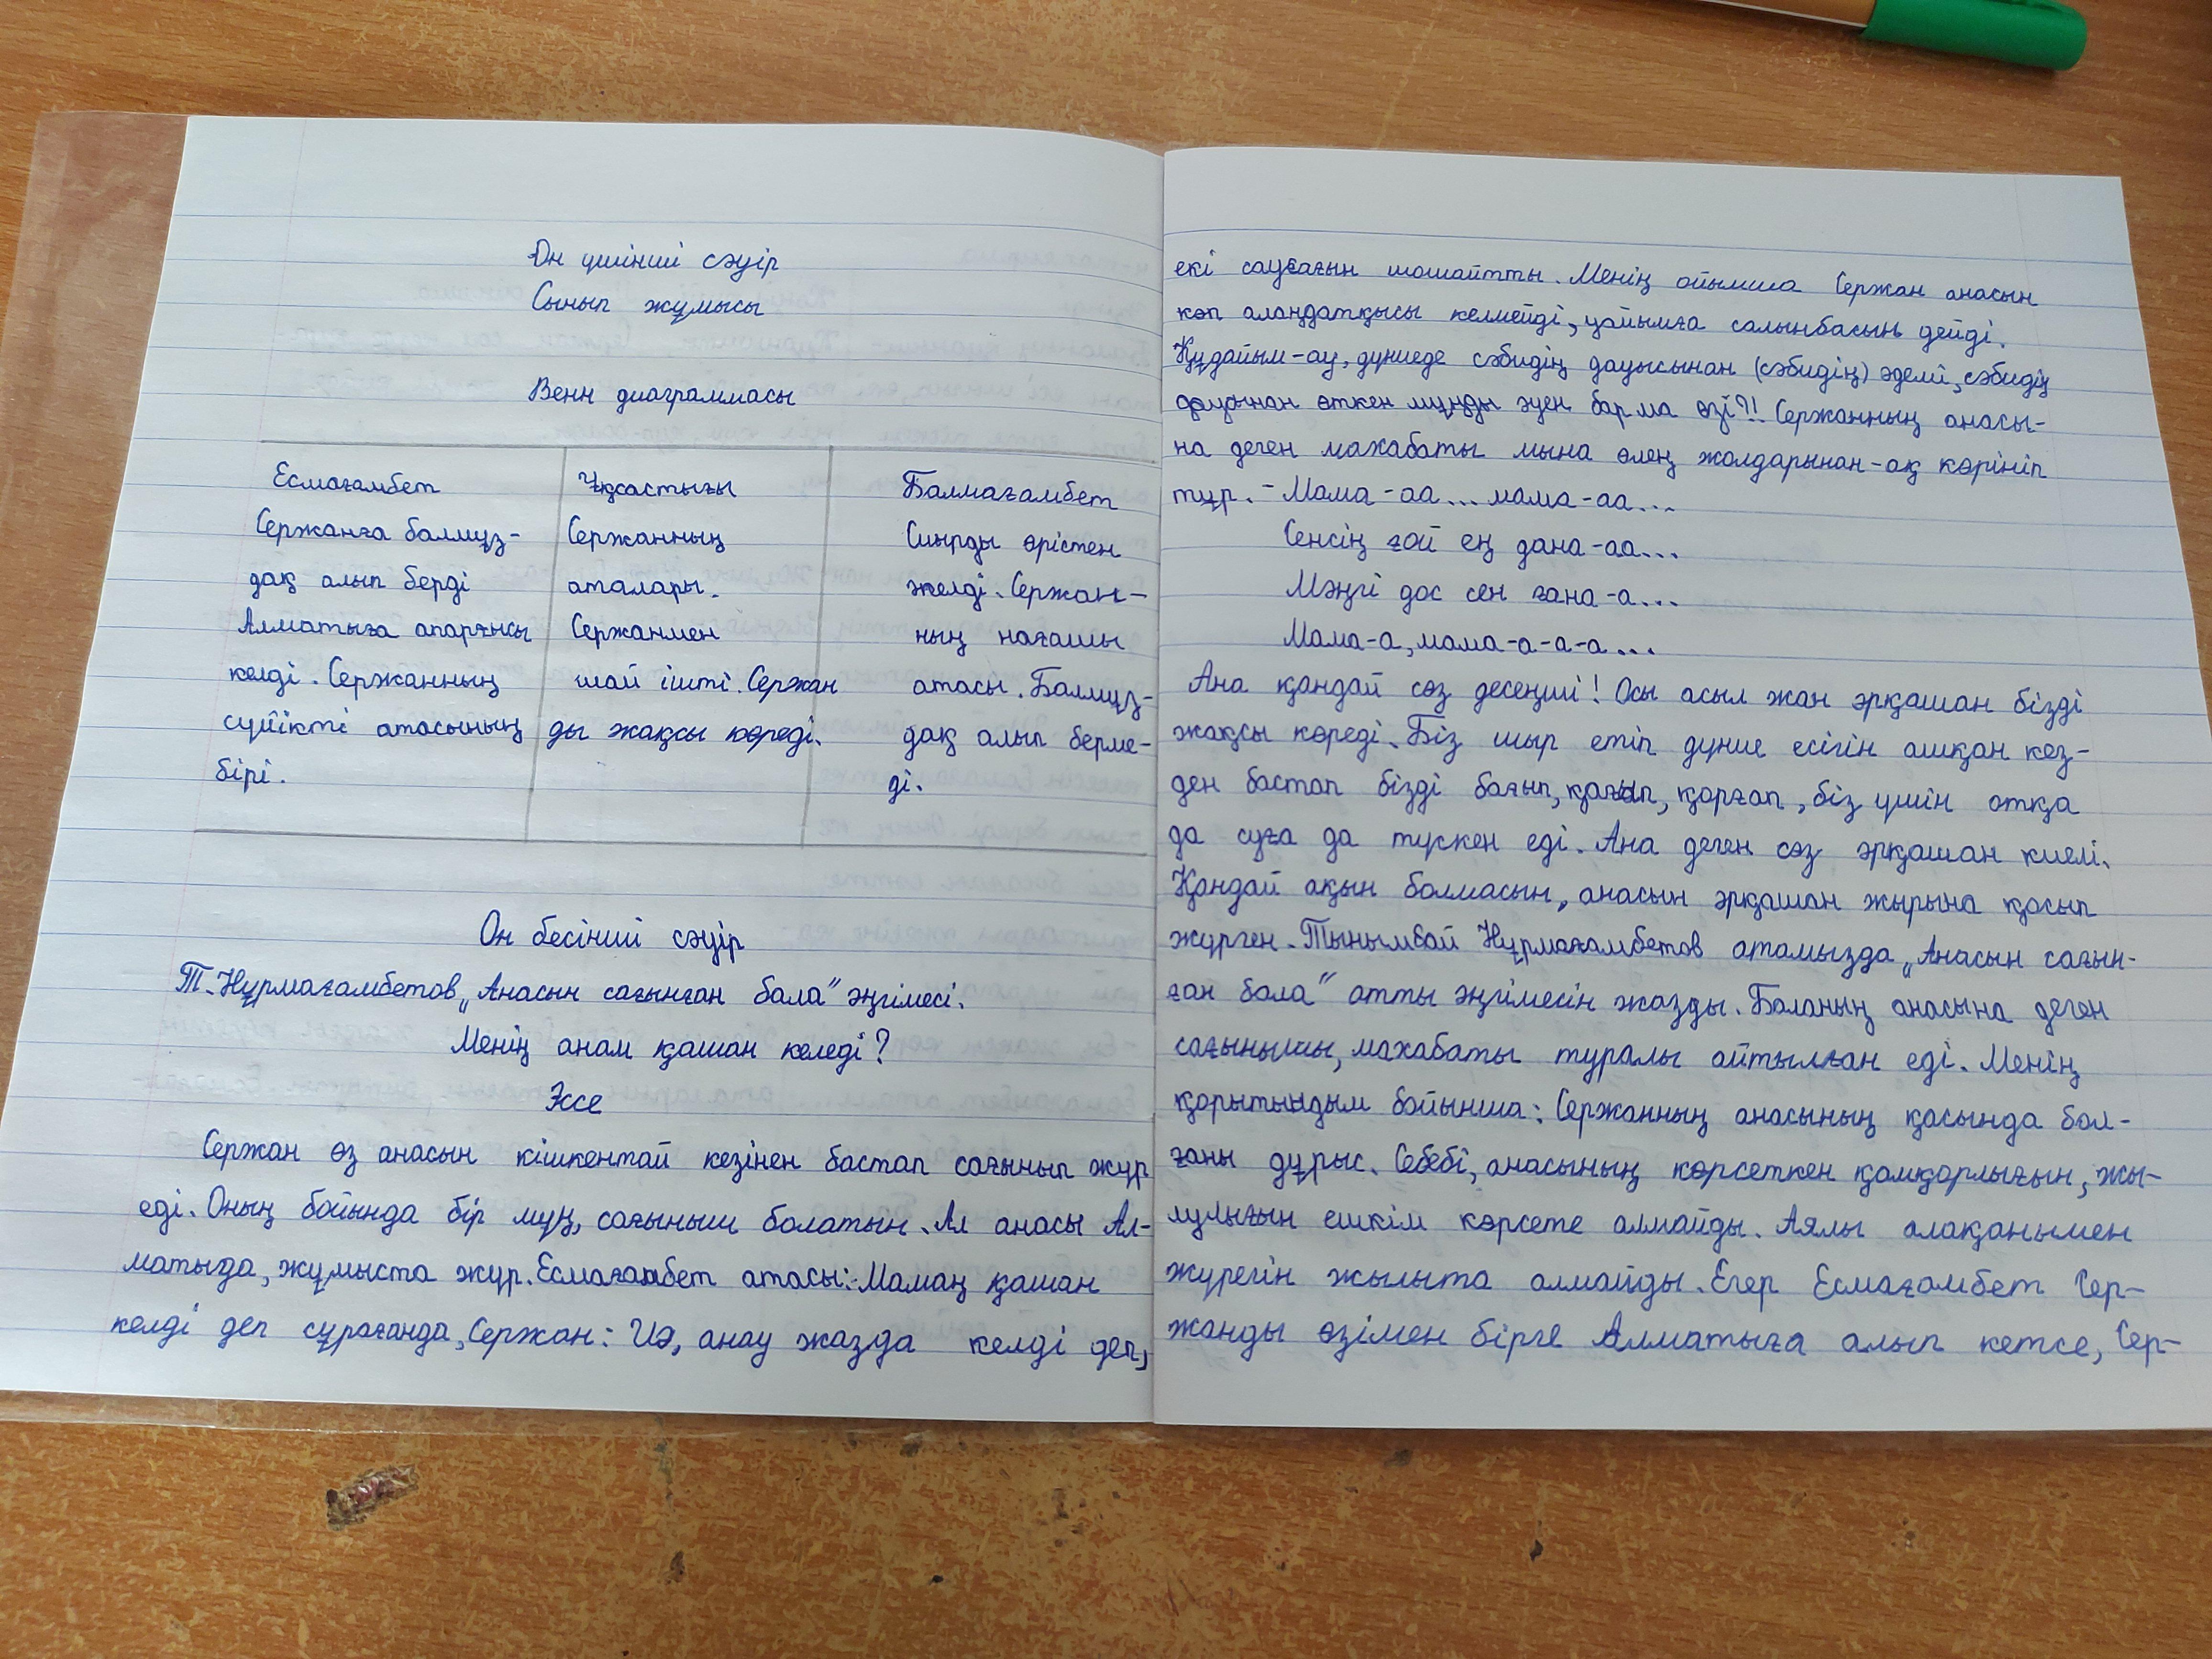 Он үшінші сәуір
Сынып жұмысы
Венн диаграммасы
Есмағамбет
Сержанға балмұз-
дақ алып берді
Алматыға апарғысы
келді. Сержанның
сүйікті атасының
бірі.
Ұқсастығы
Сержанның
аталары.
Сержанмен
шай ішті. Сержан
ды жақсы көреді.
Балмағамбет
Сиырды өрістен
желді. Сержан-
ның нағашы
атасы. Балмұз-
дақ алып берме-
ді.
Он бесінші сәуір
Т. Нұрмағамбетов „Анасын сағынған бала" әңгімесі.
Менің анам қашан келеді?
Эссе
Сержан өз анасын кішкентай кезінен бастап сағынып жүр
еді. Оның бойында бір мұң, сағыныш болатын. Ал анасы Ал-
матыда, жұмыста жүр. Есмағамбет атасы: -Мамаң қашан
келді деп сұрағанда, Сержан: Иә, анау жазда келді деп,
екі саусағын шошайтты. Менің ойымша Сержан анасын
көп алаңдатқысы келмейді, уайымға салынбасын дейді.
Құдайым-ау, дүниеде сәбидің дауысынан (сәбидің) әдемі, сәбидің
өткен мұңды әуен бар ма өзі?!! Сержанның анасы-
на деген махабаты мына өлең жолдарынан-ақ көрініп
тұр. - Мама-аа... мама-аа...
Сенсің ғой ең дана-аа...
Мәңгі дос сен ғана-а...
Мама-а, мама-а-а-а...
Ана қандай сөз десеңші! Осы асыл жан әрқашан бізді
жақсы көреді. Біз шыр етіп дүние есігін ашқан кез-
ден бастап бізді бағып, қағып, қорғап, біз үшін отқа
да суға да түскен еді. Ана деген сөз әрқашан киелі.
Қандай ақын болмасын, анасын әрқашан жырына қосып
жүрген. Тынымбай Нұрмағамбетов атамызда „Анасын сағын-
ған бала" атты әңгімесін жазды. Баланың анасына деген
сағынышы, махабаты туралы айтылған еді. Менің
қорытындым бойынша: Сержанның анасының қасында бол-
ғаны дұрыс. Себебі, анасының көрсеткен қамқорлығын, жы-
лулығын ешкім көрсете алмайды. Аялы алақанымен
жүрегін жылыта алмайды. Егер Есмағамбет Сер-
жанды өзімен бірге Алматыға алып кетсе, Сер-